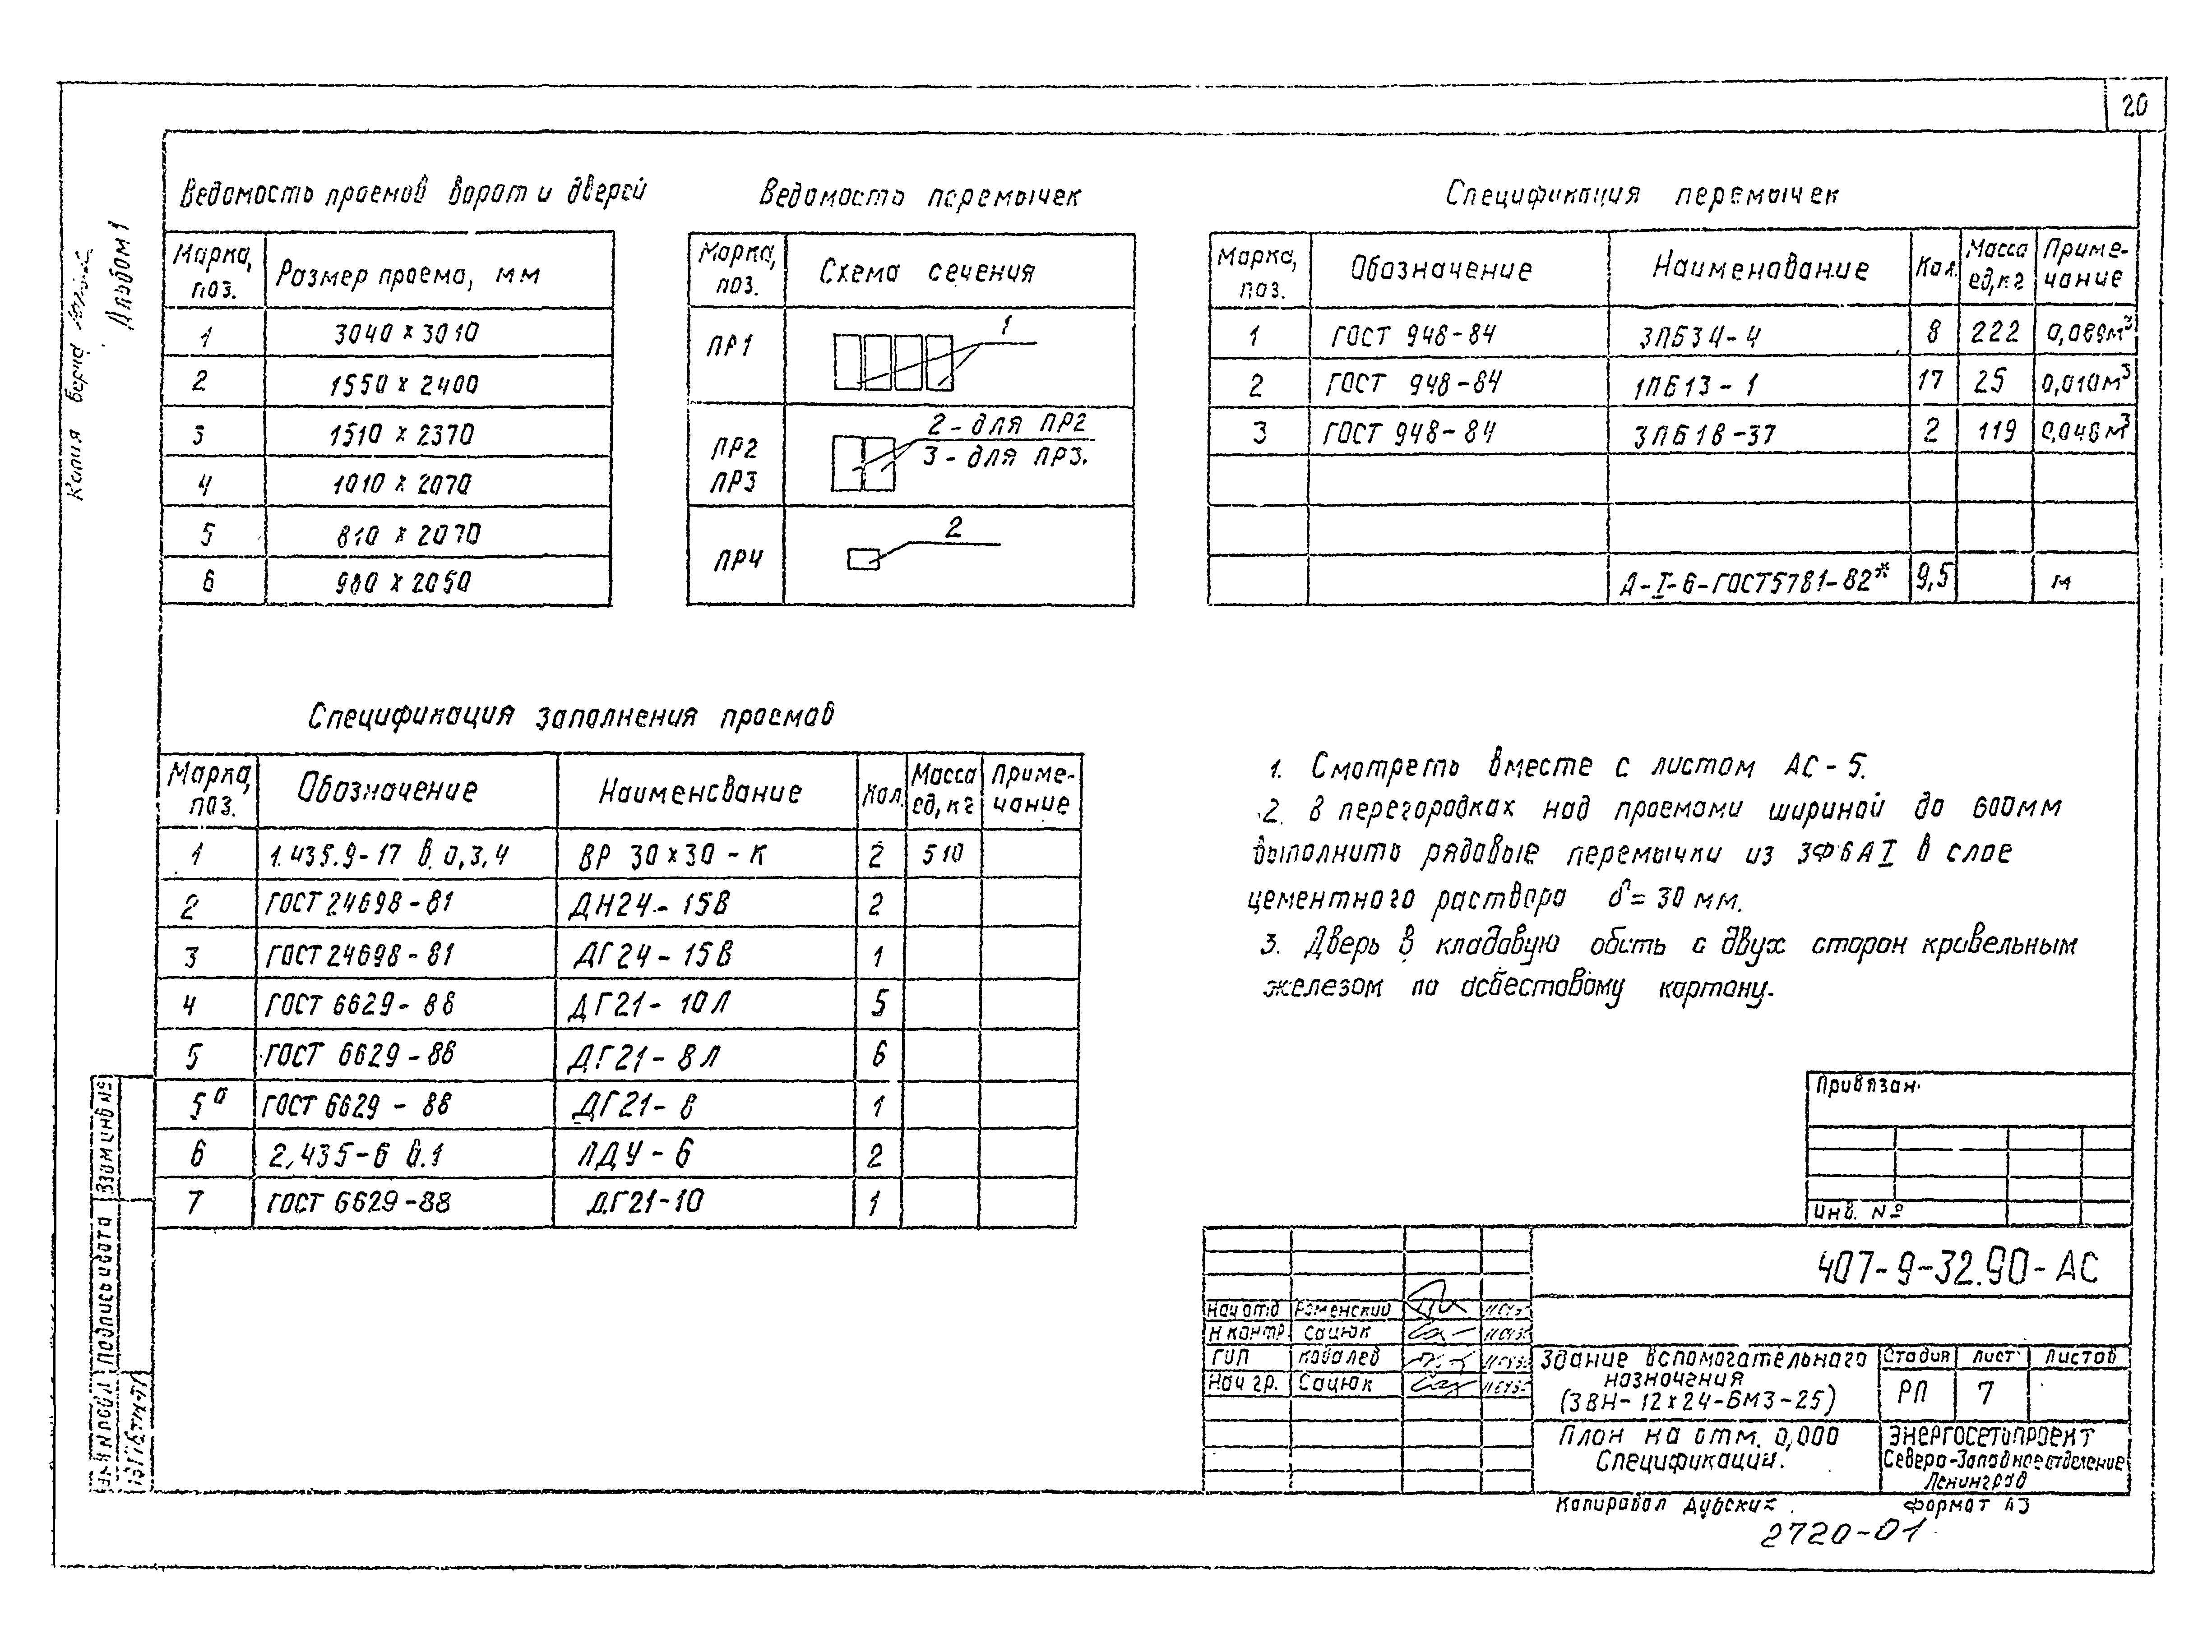 20
Альбом 1
Копия верна
Ведомость проемов ворот и дверей
Марка, поз. Размер проема, мм
1 3040 x 3010
2 1550 x 2400
3 1510 x 2370
4 1010 x 2070
5 810 x 2070
6 980 x 2050
Ведомость перемычек
Марка, поз. Схема сечения
ПР1 1
ПР2 2 - для ПР2
ПР3 3 - для ПР3.
ПР4 2
Спецификация перемычек
Марка, поз. Обозначение Наименование Кол. Масса ед, кг Примечание
1 ГОСТ 948-84 3ПБ34-4 8 222 0,089м³
2 ГОСТ 948-84 1ПБ13-1 17 25 0,010м³
3 ГОСТ 948-84 3ПБ18-37 2 119 0,048м³
А-I-6-ГОСТ5781-82* 9,5 м
Спецификация заполнения проемов
Марка, поз. Обозначение Наименование Кол. Масса ед, кг Примечание
1 1.435.9-17 в.0,3,4 ВР 30x30-К 2 510
2 ГОСТ 24698-81 ДН24-15В 2
3 ГОСТ 24698-81 ДГ24-15В 1
4 ГОСТ 6629-88 ДГ21-10Л 5
5 ГОСТ 6629-88 ДГ21-8Л 6
5а ГОСТ 6629-88 ДГ21-8 1
6 2.435-6 в.1 ЛДУ-6 2
7 ГОСТ 6629-88 ДГ21-10 1
1. Смотреть вместе с листом АС-5.
2. В перегородках над проемами шириной до 600мм
выполнить рядовые перемычки из 3Ф6АI в слое
цементного раствора δ=30 мм.
3. Дверь в кладовую обить с двух сторон кровельным
железом по асбестовому картону.
Привязан
Инв. №
407-9-32.90-АС
Нач отд Роменский
Н контр Сацюк
ГИП Ковалев
Нач гр. Сацюк
Здание вспомогательного
назначения
(ЗВН-12x24-БМЗ-25)
Стадия Лист Листов
РП 7
План на отм. 0,000
Спецификации.
ЭНЕРГОСЕТЬПРОЕКТ
Северо-Западное отделение
Ленинград
Копировал Формат А3
2720-01
Взам инв №
Подпись и дата
Инв № подл